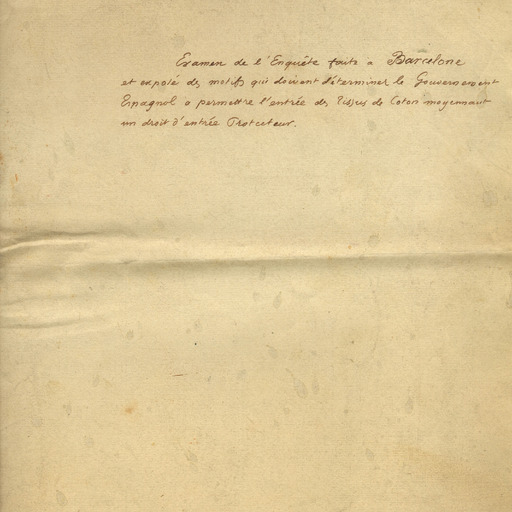 Examen de l'Enquête faite a Barcelone
et exposé des motifs qui doivent déterminer le Gouvernement
Espagnol a permettre l'entrée des Tissus de Coton moyennant
un droit d'entrée Protecteur.